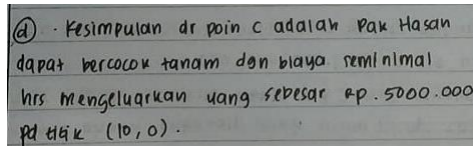 (d) . Kesimpulan dr poin c adalah Pak Hasan
dapat bercocok tanam dgn biaya seminimal
hrs mengeluarkan uang sebesar Rp. 5000.000
pd titik (10,0).